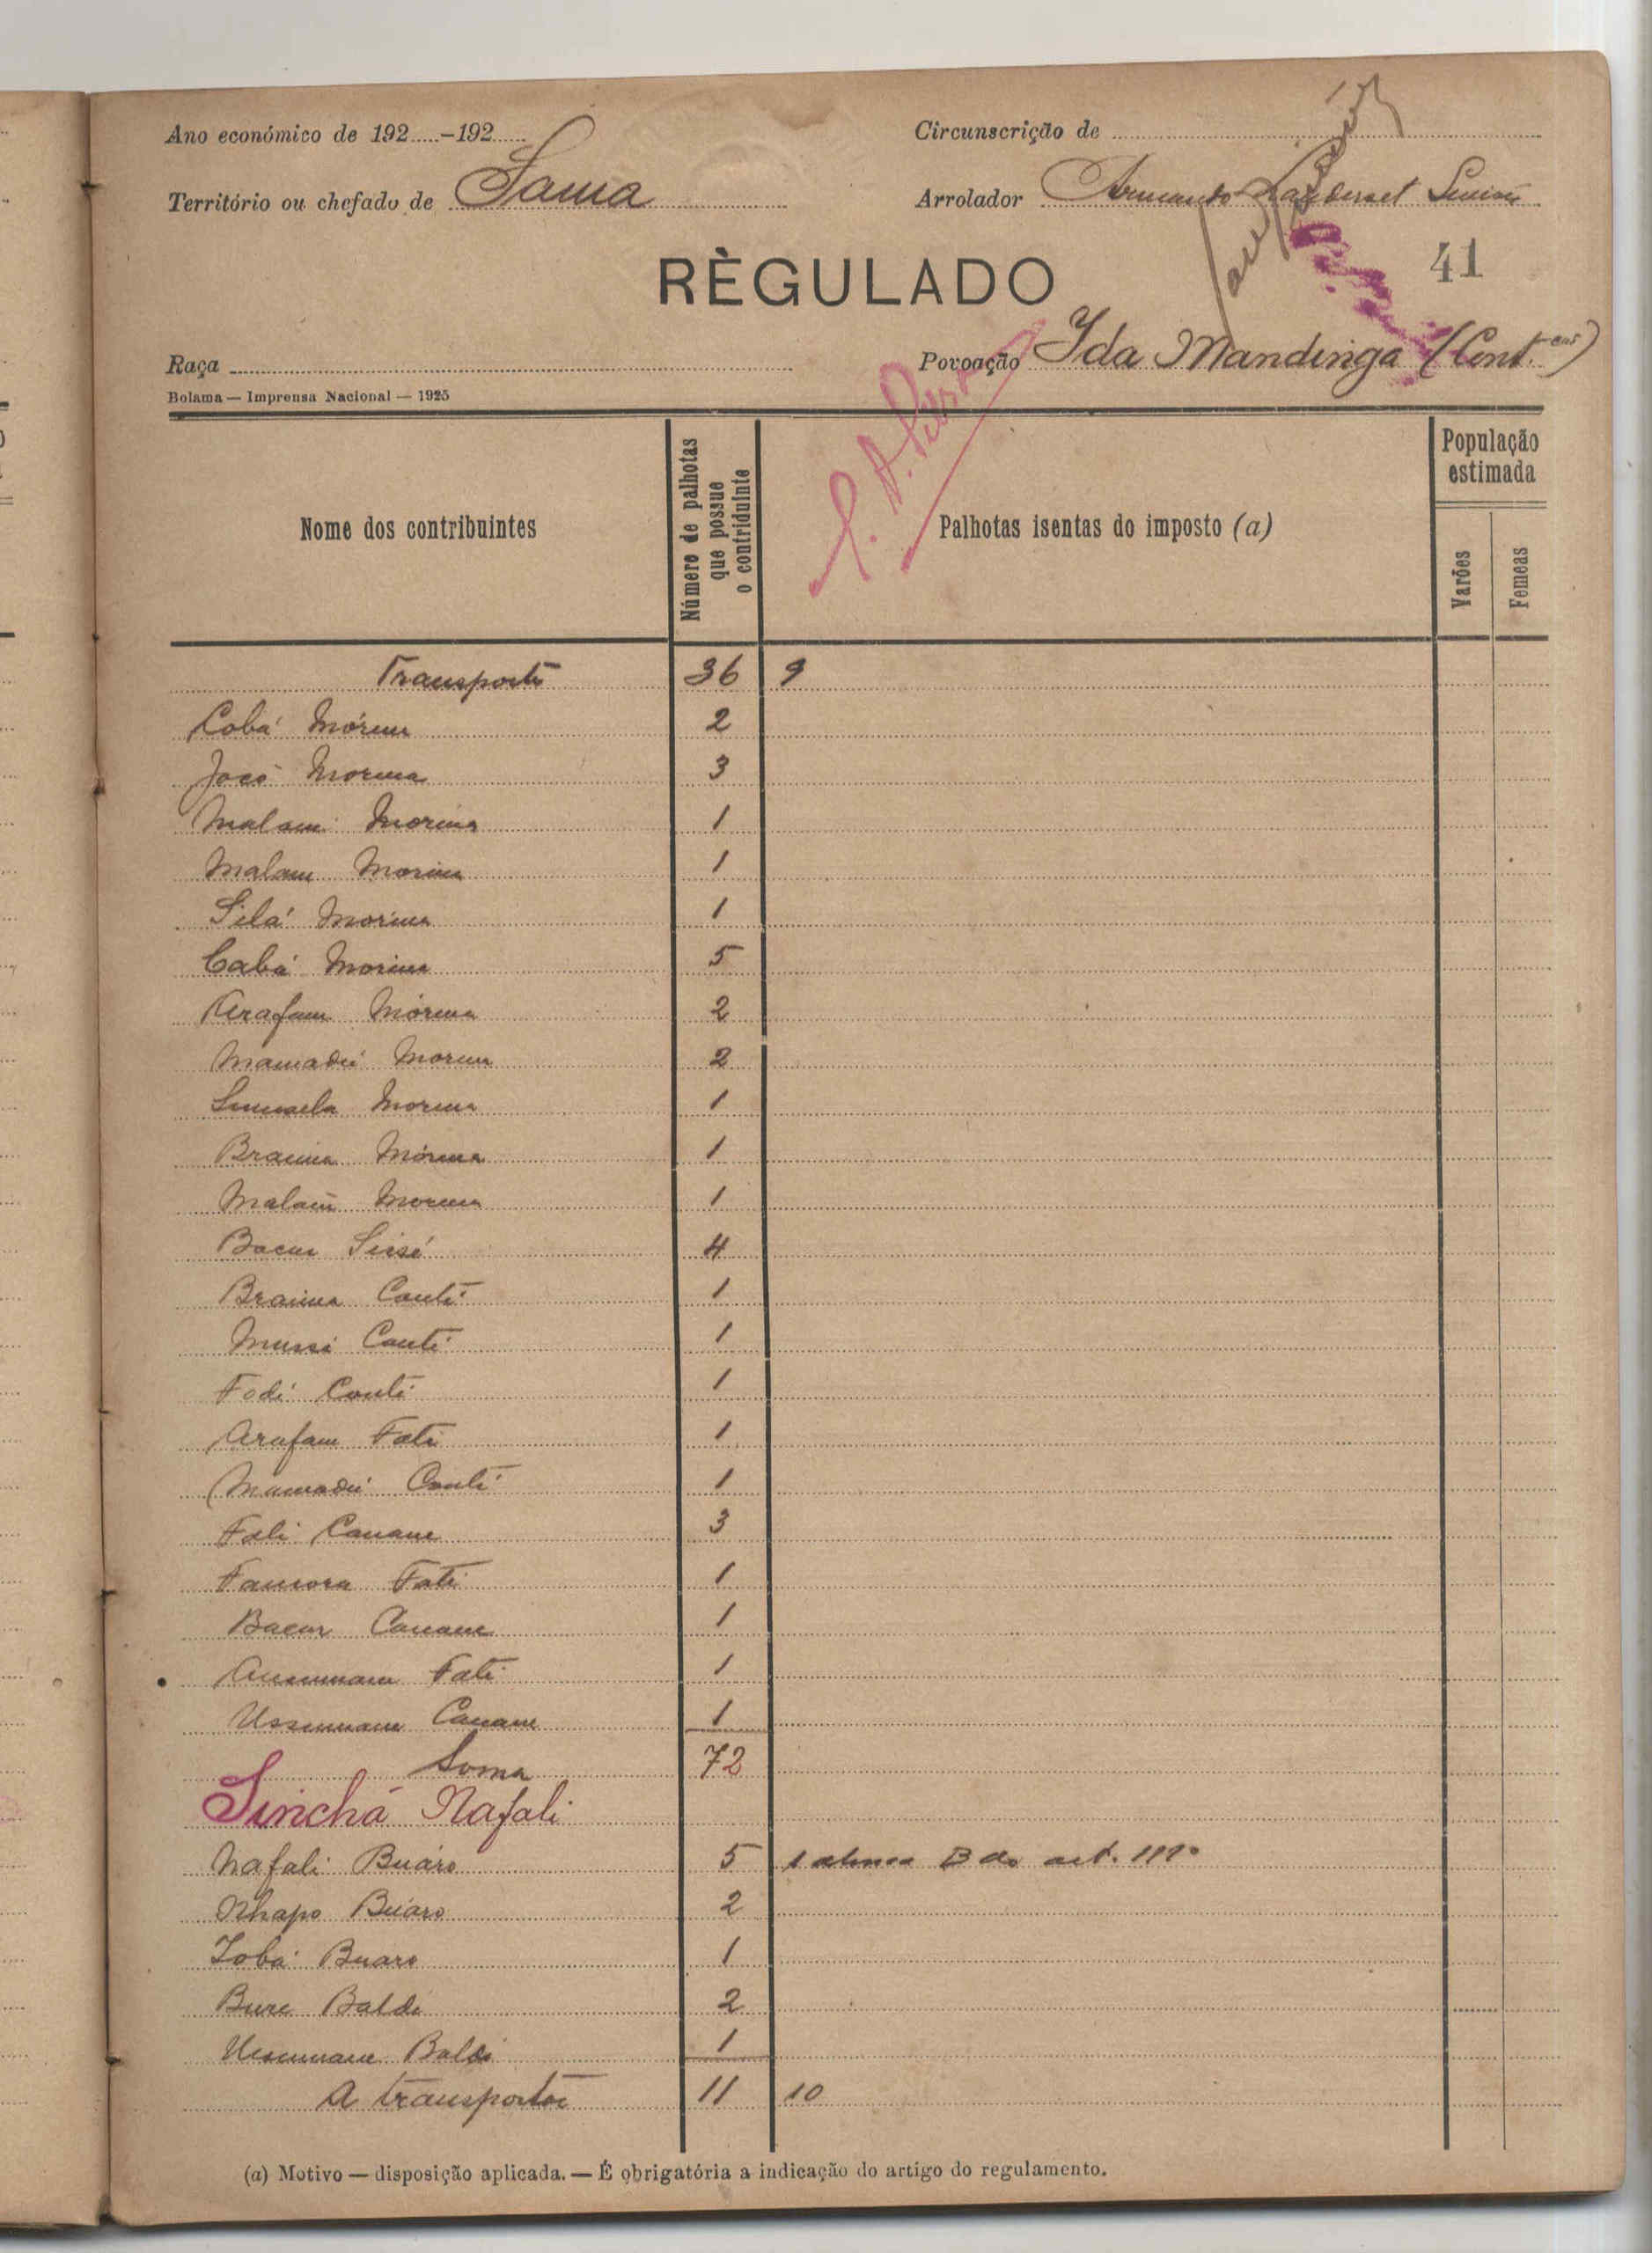 Ano económico de 192.....-192.....
Circunscrição de
Território ou chefado de Sama
Arrolador Armando Landerset Simões
RÈGULADO
41
Raça
Povoação Ida Mandinga (Cont.)
Bolama — Imprensa Nacional — 1925
Nome dos contribuintes
Número de palhotas que possue o contriduinte
Palhotas isentas do imposto (a)
População estimada
Varões
Femeas
Transporte 36 9
Cobá Mórima 2
Jocó Morima 3
Malam Morima 1
Malam Morima 1
Silá Morima 1
Cabá Morima 5
Arafam Mórima 2
Mamadú Morima 2
Morima 1
Braima Mórima 1
Malam Morima 1
Bacar Sissé 4
Braima Conté 1
Mussá Conté 1
Fodé Conté 1
Arafam Fati 1
Mamadú Conté 1
Fali Camane 3
Famora Fati 1
Bacar Camane 1
Fati 1
Ussumane Camane 1
Soma 72
Sinchá Nafali
Nafali Buáro 5 1 alinea B do art. 111º
Nhapo Buáro 2
Iobá Buaro 1
Bure Balde 2
Ussumane Balde 1
A transportar 11 10
(a) Motivo — disposição aplicada. — É obrigatória a indicação do artigo do regulamento.